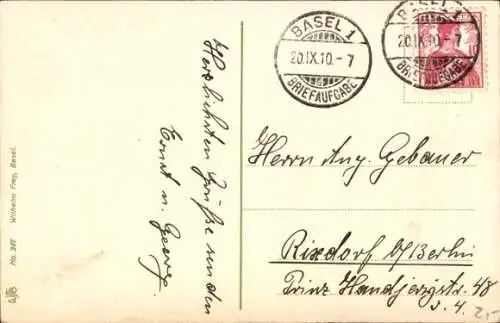 BASEL 1
20.IX.10.-7
BRIEFAUFGABE
BASEL 1
20.IX.10.-7
BRIEFAUFGABE
10
Herzlichsten Grüße senden
Ernst u. Georg.
Herrn Aug. Gebauer
Rixdorf b/Berlin
Prinz Handjerystr. 48
No. 307 Wilhelm Frey, Basel.